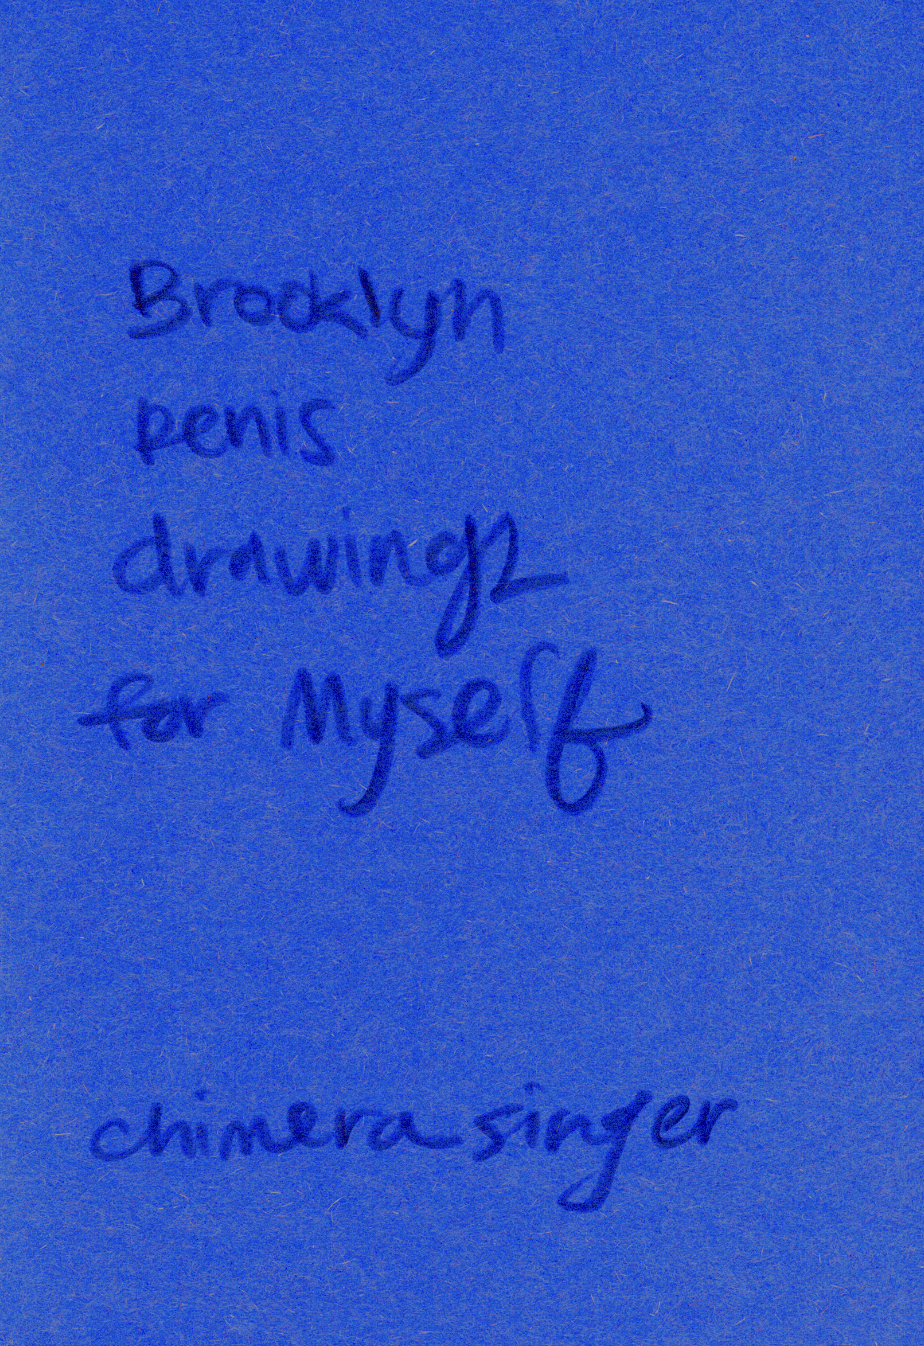 Brooklyn
penis
drawingz
for Myself
chimera singer